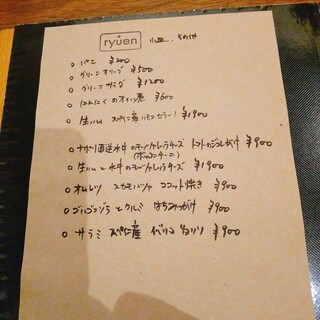 ryuen 小皿、その他
○ パン ¥200
○ グリーンオリーブ ¥500
○ グリーンサラダ ¥1200
○ にんにくのオイル煮 ¥600
○ 生ハム スペイン産ハモンセラーノ ¥1900
○ ナポリ直送水牛のモッツァレラチーズ トマトのジュレがけ ¥900
(ボッコンチーニ)
○ 生ハムと水牛のモッツァレラチーズ ¥1900
○ オムレツ スカモルツァ ココット焼き ¥900
○ ゴルゴンゾーラとクルミ はちみつがけ ¥900
○ サラミ スペイン産 イベリコチョリソ ¥900